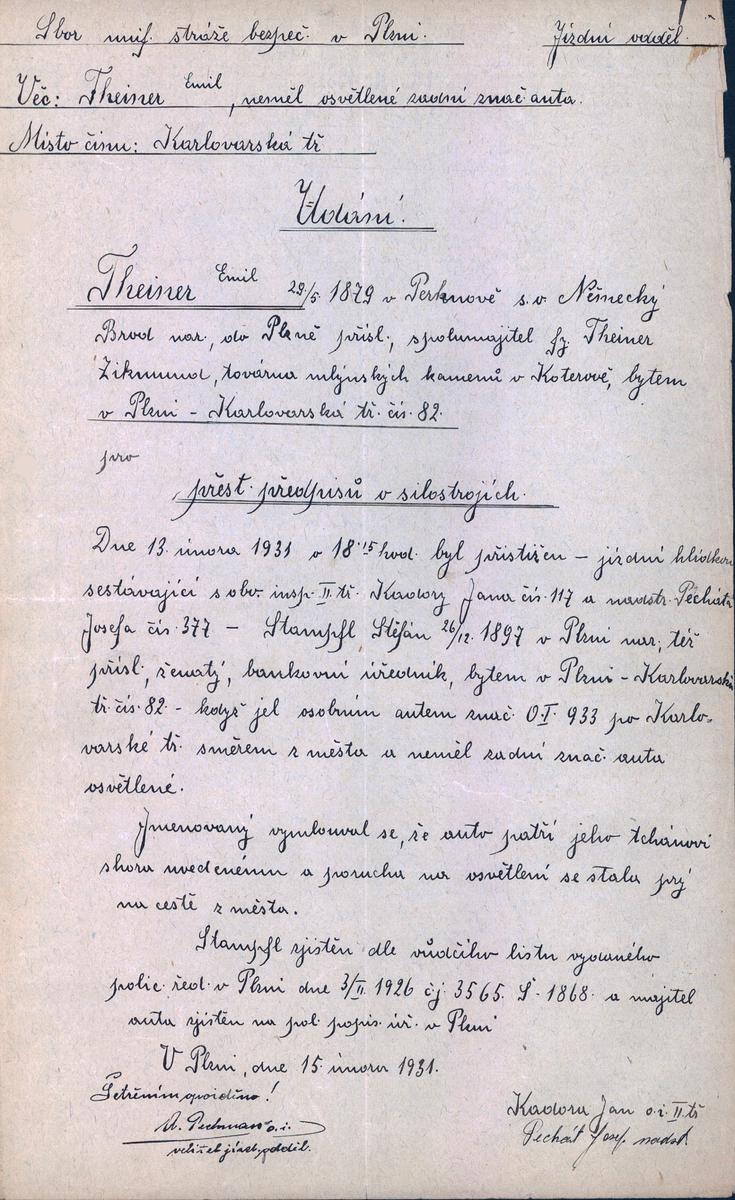 Sbor unif. stráže bezpeč. v Plzni. Jízdní odděl.
Věc: Theiner Emil, neměl osvětlené zadní znač. auta.
Místo činu: Karlovarská tř
Udání.
Theiner Emil 29/5. 1879 v Perknově s. o. Německý
Brod nar., do Plzně přísl., spolumajitel fy. Theiner
Zikmund, továrna mlýnských kamenů v Koterově, bytem
v Plzni - Karlovarská tř. čís. 82.
pro
přest. předpisů o silostrojích.
Dne 13. února 1931 o 18.15 hod. byl přistižen - jízdní hlídkou
sestávající s obv. insp. II. tř. Kadory Jana čís. 117 a nadstr. Pecháta
Josefa čís. 377 - Stampfl Štěfán 26/12. 1897 v Plzni nar., též
přísl., ženatý, bankovní úředník, bytem v Plzni - Karlovarská
tř. čís. 82 - když jel osobním autem znač. O.I. 933 po Karlo-
varské tř. směrem z města a neměl zadní znač. auta
osvětlené.
Jmenovaný vymlouval se, že auto patří jeho tchánovi
shora uvedenému a porucha na osvětlení se stala prý
na cestě z města.
Stampfl zjištěn dle vůdčího listu vydaného
polic. řed. v Plzni dne 3/II. 1926 čj. 3565. Š-1868. a majitel
auta zjištěn na pol. popis. úř. v Plzni
V Plzni, dne 15. února 1931.
Šetřením
velitel jízd. odděl.
Kadora Jan o. i. II. tř
Pechát Josef nadst.